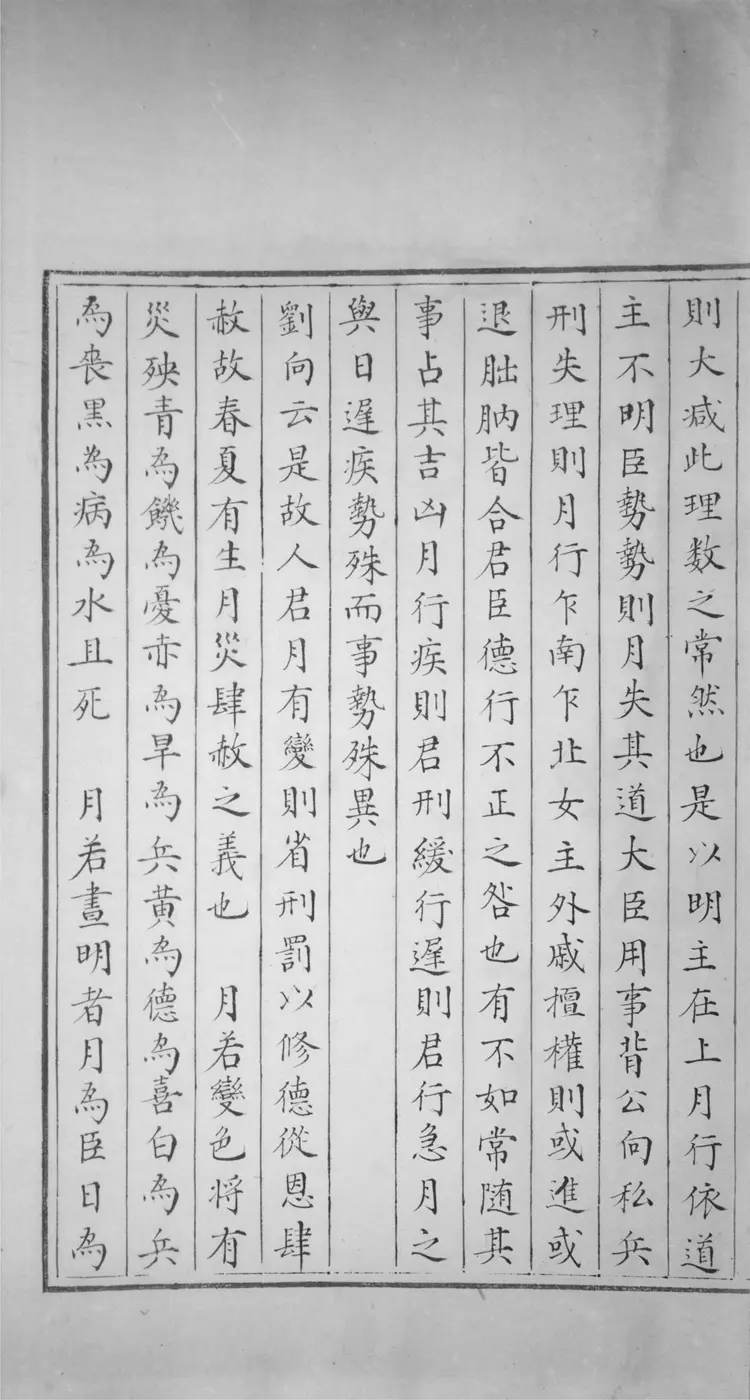 則大減此理数之常然也是以明主在上月行依道
主不明臣勢勢則月失其道大臣用事背公向私兵
刑失理則月行乍南乍北女主外戚擅權則或進或
退朏朒皆合君臣德行不正之咎也有不如常随其
事占其吉凶月行疾則君刑緩行遲則君行急月之
與日遲疾勢殊而事勢殊異也
劉向云是故人君月有變則省刑罰以修德從恩肆
赦故春夏有生月災肆赦之義也　月若變色将有
災殃青為饑為憂赤為旱為兵黄為德為喜白為兵
為喪黑為病為水且死　月若晝明者月為臣日為